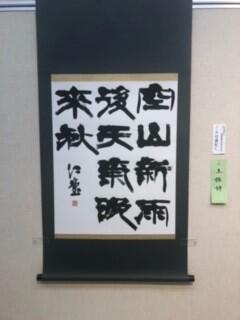 空山新雨
後天氣晚
來秋